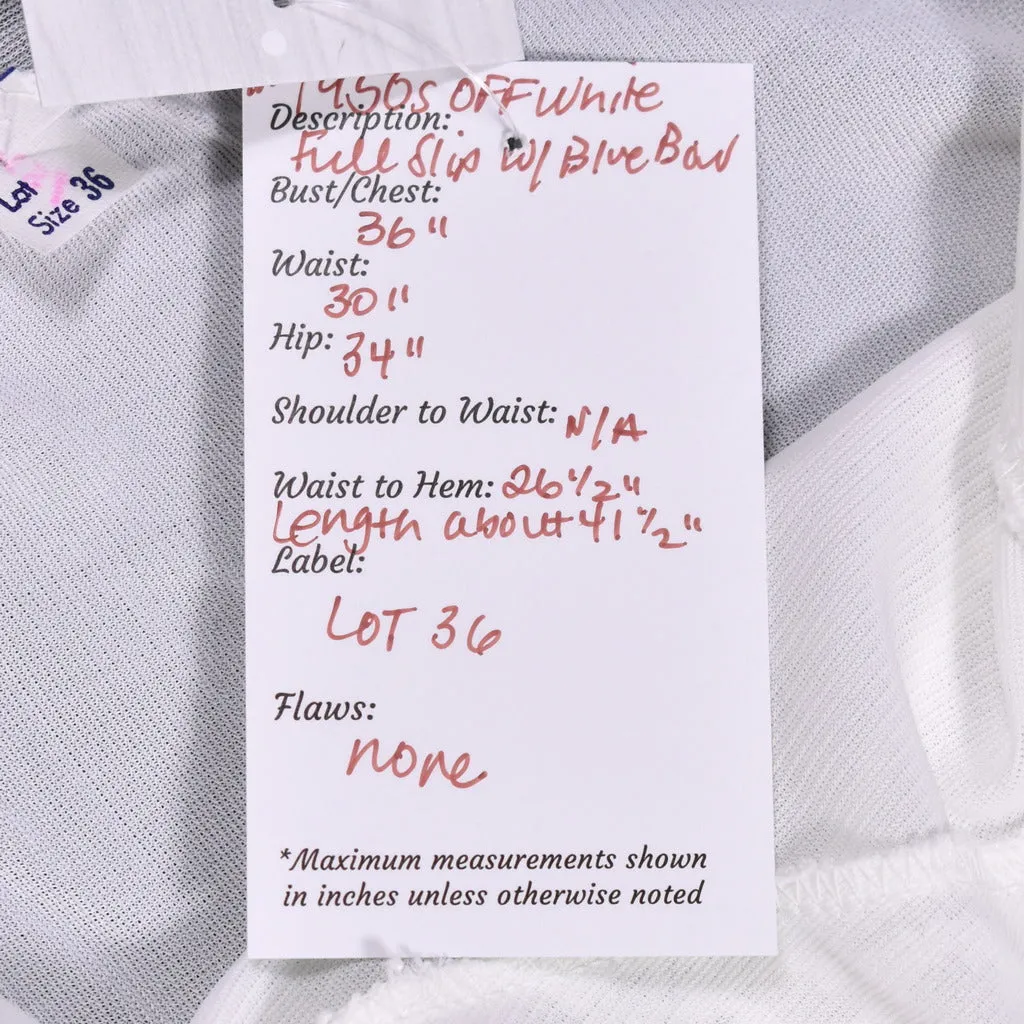 Lot
Size 36
1950s OFFWhite
Description:
Full Slip w/ Blue Bow
Bust/Chest:
36"
Waist:
30"
Hip: 34"
Shoulder to Waist: N/A
Waist to Hem: 26 1/2"
Length about 41 1/2"
Label:
LOT 36
Flaws:
none
*Maximum measurements shown
in inches unless otherwise noted